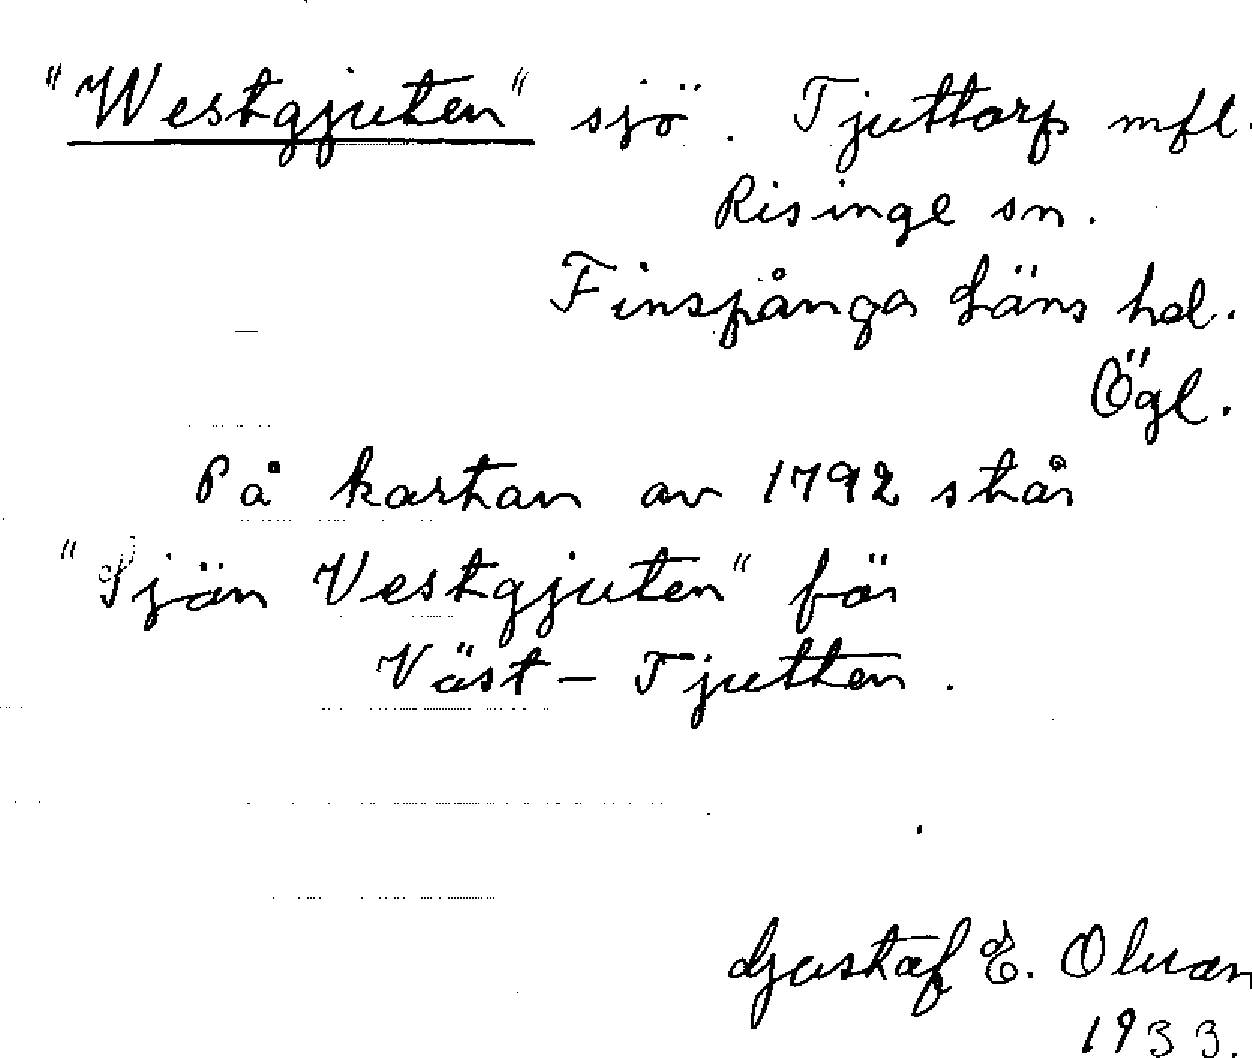 "Westgjuten" sjö. Tjuttorp mfl.
Risinge sn.
Finspånga läns hd.
Ögl.
På kartan av 1792 står
"Sjön Vestgjuten" för
Väst-Tjutten.
Gustaf E. Olsson
1933.